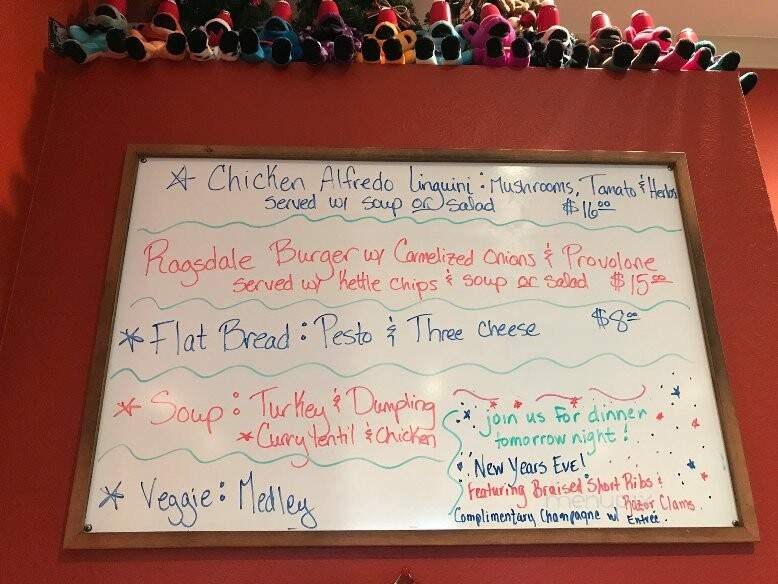 * Chicken Alfredo Linquini: Mushrooms, Tamato & Herbs
served w/ soup or salad $16.00
Ragsdale Burger w/ Carmelized Onions & Provolone
served w/ Kettle chips & soup or salad $15.00
* Flat Bread: Pesto & Three cheese $8.00
* Soup: Turkey & Dumpling
* Curry lentil & Chicken
* Veggie: Medley
* join us for dinner
tomorrow night!
New Years Eve!
Featuring Braised Short Ribs &
Razor Clams.
Complimentary Champagne w/ Entrée.